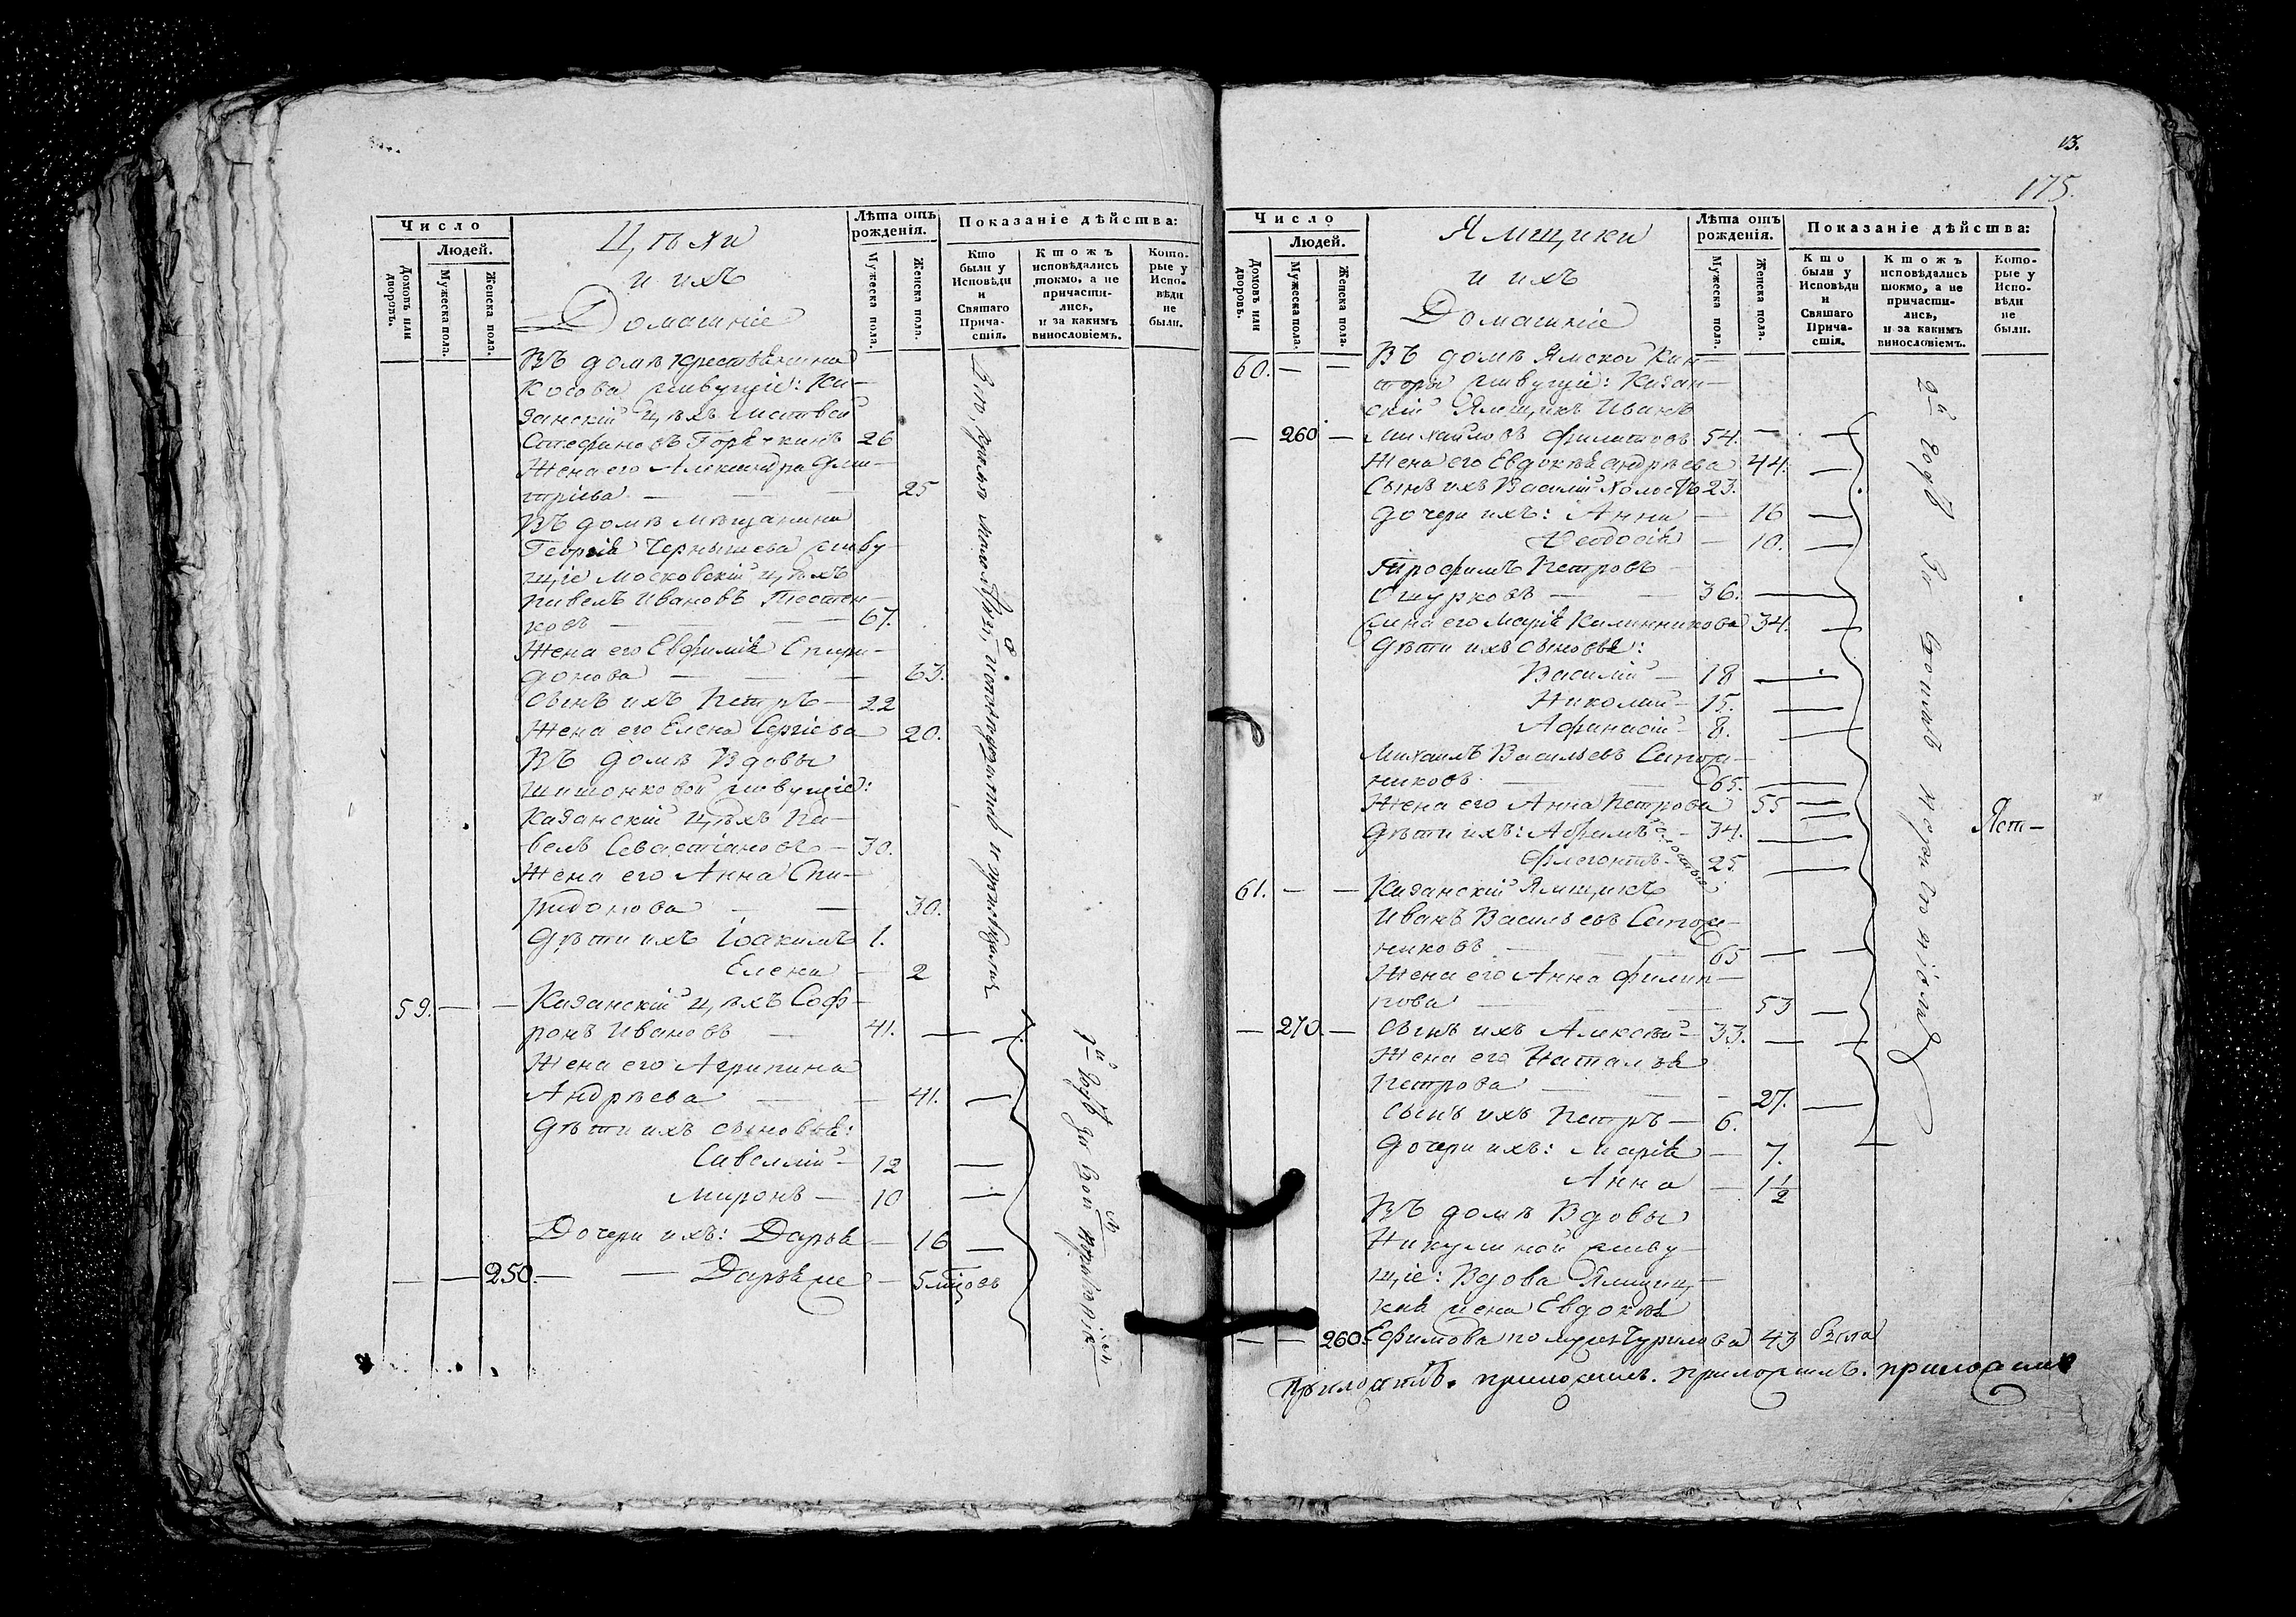 Число
Людей.
Домовъ или дворовъ.
Мужеска пола.
Женска пола.
Цѣхи
и ихъ
Домашніе
Лѣта отъ рожденія.
Мужеска пола.
Женска пола.
Показаніе дѣйства:
Кто были у Исповѣди и Святаго Прича-стія.
Ктожъ исповѣдались токмо, а не причасти-лись, и за какимъ винословіемъ.
Кото-рые у Испо-вѣди не были.
Въ домѣ крестьянина
Косова живущіе: Ка-
занскій цѣхъ Матвей
Стефановъ Горячкинъ 26
Жена его Александра Дми-
тріева — — — 25
Въ домѣ мѣщанина
Георгія Чернышева живу-
щіе Московскій цѣхъ
Павелъ Ивановъ
ковъ — — — 67.
Жена его Евфимія Спири-
донова — — — 63.
Сынъ ихъ Петръ — 22
Жена его Елена Сергіева 20.
Въ домѣ Вдовы
Шишонковой живущіе:
Казанскій цѣхъ Па-
велъ Севастіановъ — 30.
Жена его Анна Спи-
ридонова — — 30.
Дѣти ихъ Іоакимъ 1.
Елена — 2
59. — — Казанскій цѣхъ Соф-
ронъ Ивановъ — 41. —
Жена его Агрипина
Андрѣева — — 41. —
Дѣти ихъ сыновья:
Савеллій — 12 —
Миронъ — 10 —
Дочери ихъ: Дарья — 16 —
— — 250. — — Дарья же — 5 мцовъ
13.
175.
Число
Людей.
Домовъ или дворовъ.
Мужеска пола.
Женска пола.
Ямщики
и ихъ
Домашніе
Лѣта отъ рожденія.
Мужеска пола.
Женска пола.
Показаніе дѣйства:
Кто были у Исповѣди и Святаго Прича-стія.
Ктожъ исповѣдались токмо, а не причасти-лись, и за какимъ винословіемъ.
Кото-рые у Испо-вѣди не были.
60. — — Въ домѣ Ямской Кан-
торы живущіе: Казан-
скій Ямщикъ Иванъ
— 260 — Михайловъ Филиповъ 54. —
Жена его Евдокія Андрѣева 44. —
Сынъ ихъ Василій холостъ 23.
Дочери ихъ: Анна — 16 —
Ѳеодосія — 10. —
Трофимъ Петровъ —
Ошурковъ — — 36. —
Жена его Марія Калинникова 34. —
Дѣти ихъ сыновья:
Василій — 18 —
Николай — 15. —
Афанасій — 8. —
Михаилъ Васильевъ Сапож-
никовъ — — 65. —
Жена его Анна Петрова 55 —
Дѣти ихъ: Ефимъ — 34. —
Флегонтъ — 25. —
холостые
61. — — Казанскій Ямщикъ
Иванъ Васильевъ Сапож-
никовъ — — 65 —
Жена его Анна Филип-
пова — — 53 —
— 270. — Сынъ ихъ Алексѣй — 33. —
Жена его Наталья
Петрова — — 27. —
Сынъ ихъ Петръ — 6.
Дочери ихъ: Марія — 7.
Анна — 1½
Въ домѣ Вдовы
Никулиной живу-
щіе: Вдова Ямщиц-
кая жена Евдокія
— — 260. Ефимова по мужѣ Чурилова 43 была
2й годъ За